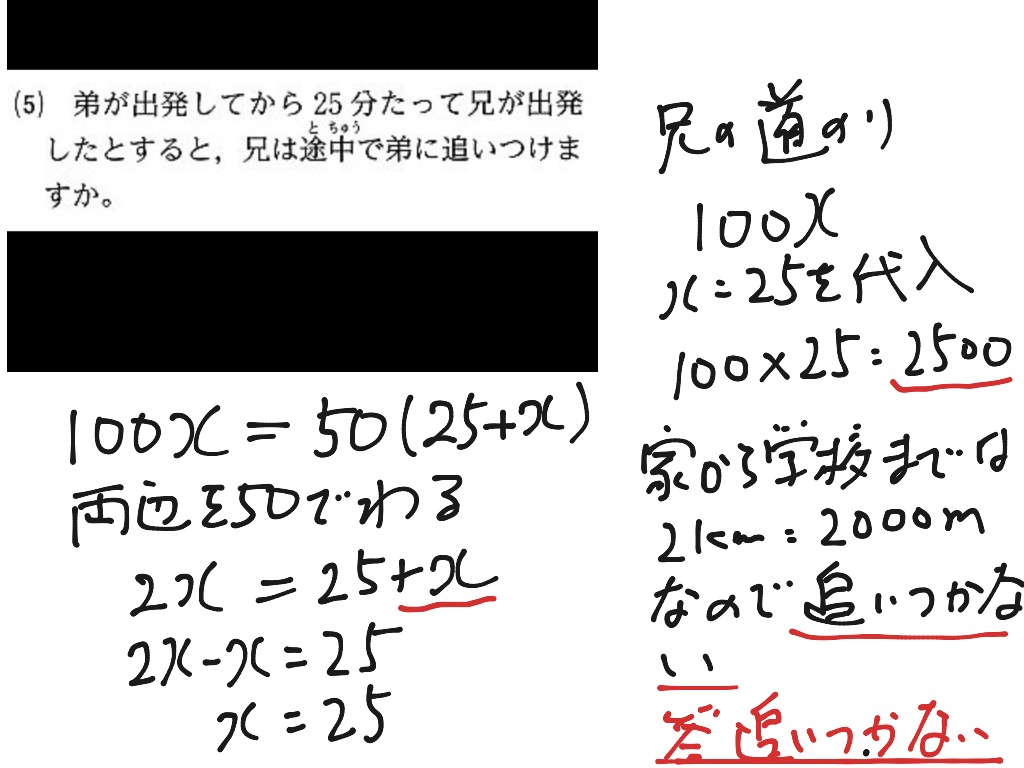 (5) 弟が出発してから25分たって兄が出発
したとすると，兄は途中で弟に追いつけま
とちゅう
すか。
100x = 50(25+x)
両辺を50でわる
2x = 25+x
2x-x=25
x=25
兄の道のり
100x
x=25を代入
100×25=2500
家から学校までは
2km=2000m
なので追いつかな
い
答 追いつかない